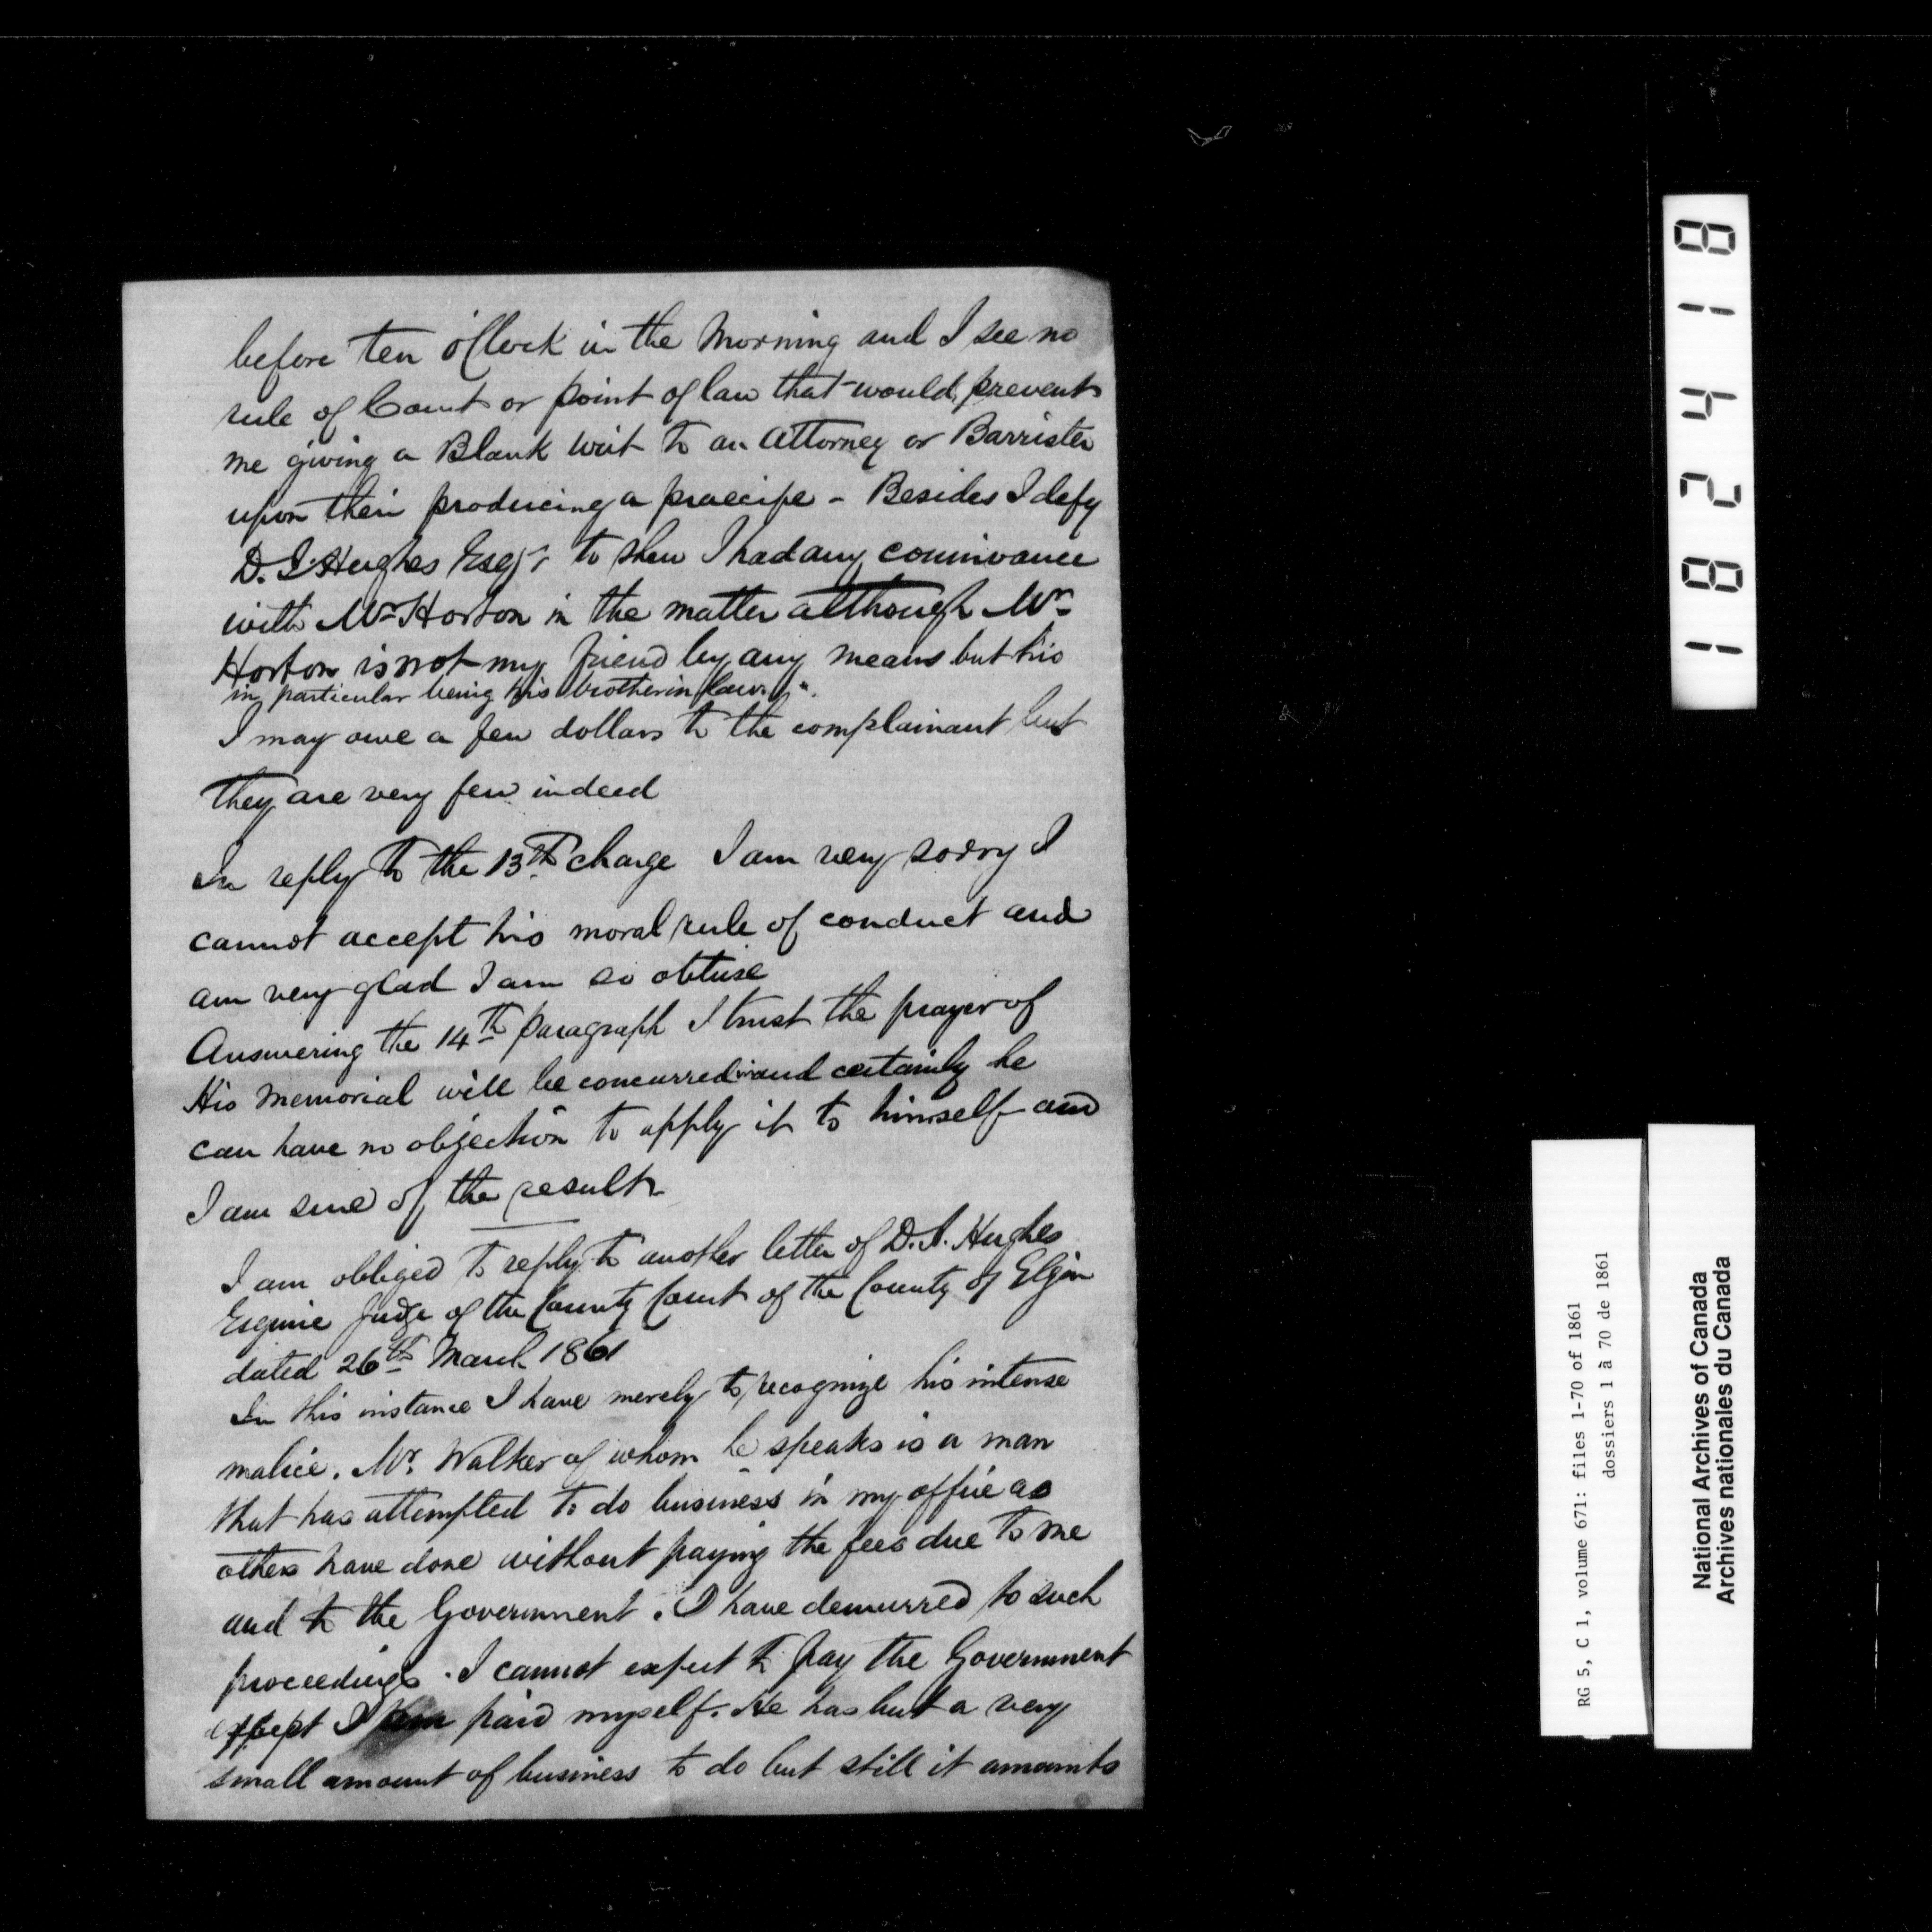 before ten o'Clock in the Morning and I see no
rule of Court or point of law that would prevent
me giving a Blank writ to an Attorney or Barrister
upon their producing a praecipe - Besides I defy
D. J. Hughes Esqr. to shew I had any connivance
with Mr Horton in the matter although Mr
Horton is not my friend by any means but his
in particular being his brother in law.
I may owe a few dollars to the complainant but
they are very few indeed
In reply to the 13th charge I am very sorry I
cannot accept his moral rule of conduct and
am very glad I am so obtuse
Answering the 14th paragraph I trust the prayer of
His Memorial will be concurred in and certainly he
can have no objection to apply it to himself and
I am sure of the result
I am obliged to reply to another letter of D. J. Hughes
Esquire Judge of the County Court of the County of Elgin
dated 26th March 1861
In this instance I have merely to recognize his intense
malice. Mr. Walker of whom he speaks is a man
that has attempted to do business in my office as
others have done without paying the fees due to me
and to the Government. I have demurred to such
proceedings. I cannot expect to pay the Government
except I am paid myself. He has but a very
small amount of business to do but still it amounts
182418
RG 5, C 1, volume 671: files 1-70 of 1861
dossiers 1 à 70 de 1861
National Archives of Canada
Archives nationales du Canada